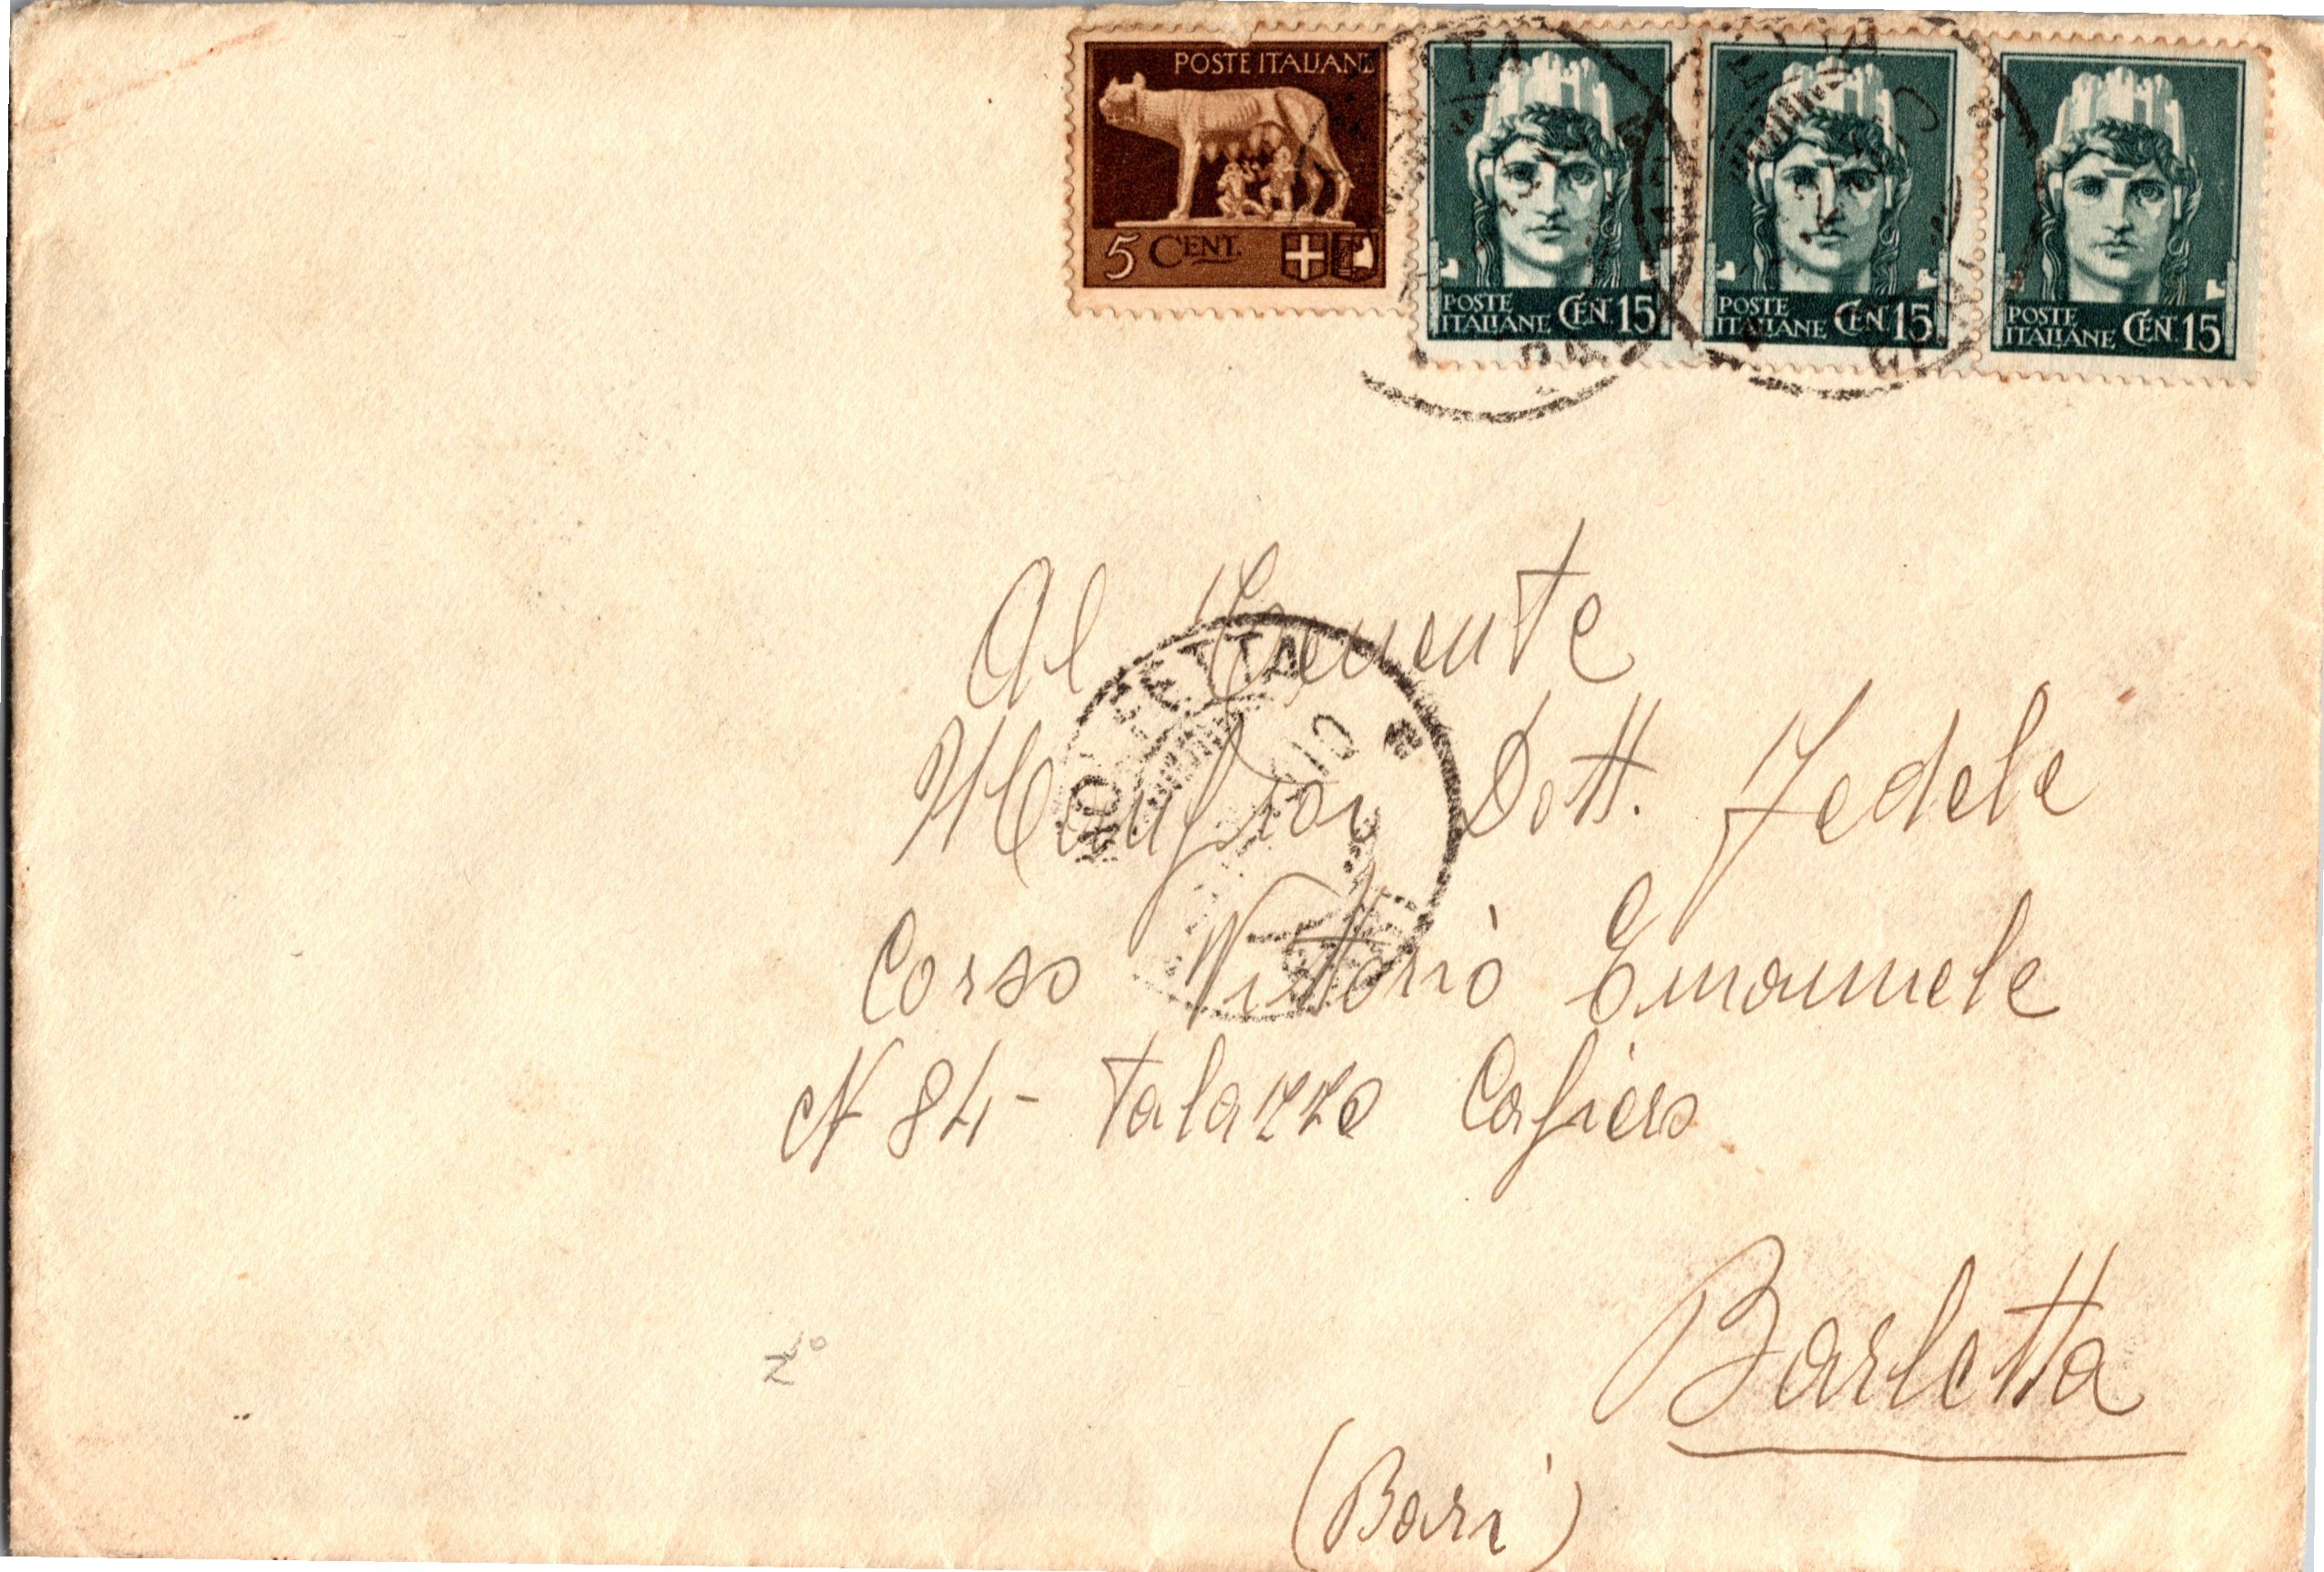 POSTE ITALIANE
5 CENT.
POSTE ITALIANE CEN. 15
POSTE ITALIANE CEN. 15
POSTE ITALIANE CEN. 15
Al Tenente
Dott. Fedele
Corso Vittorio Emanuele
N 84 - Palazzo Cafiero
MOLFETTA
Barletta
(Bari)